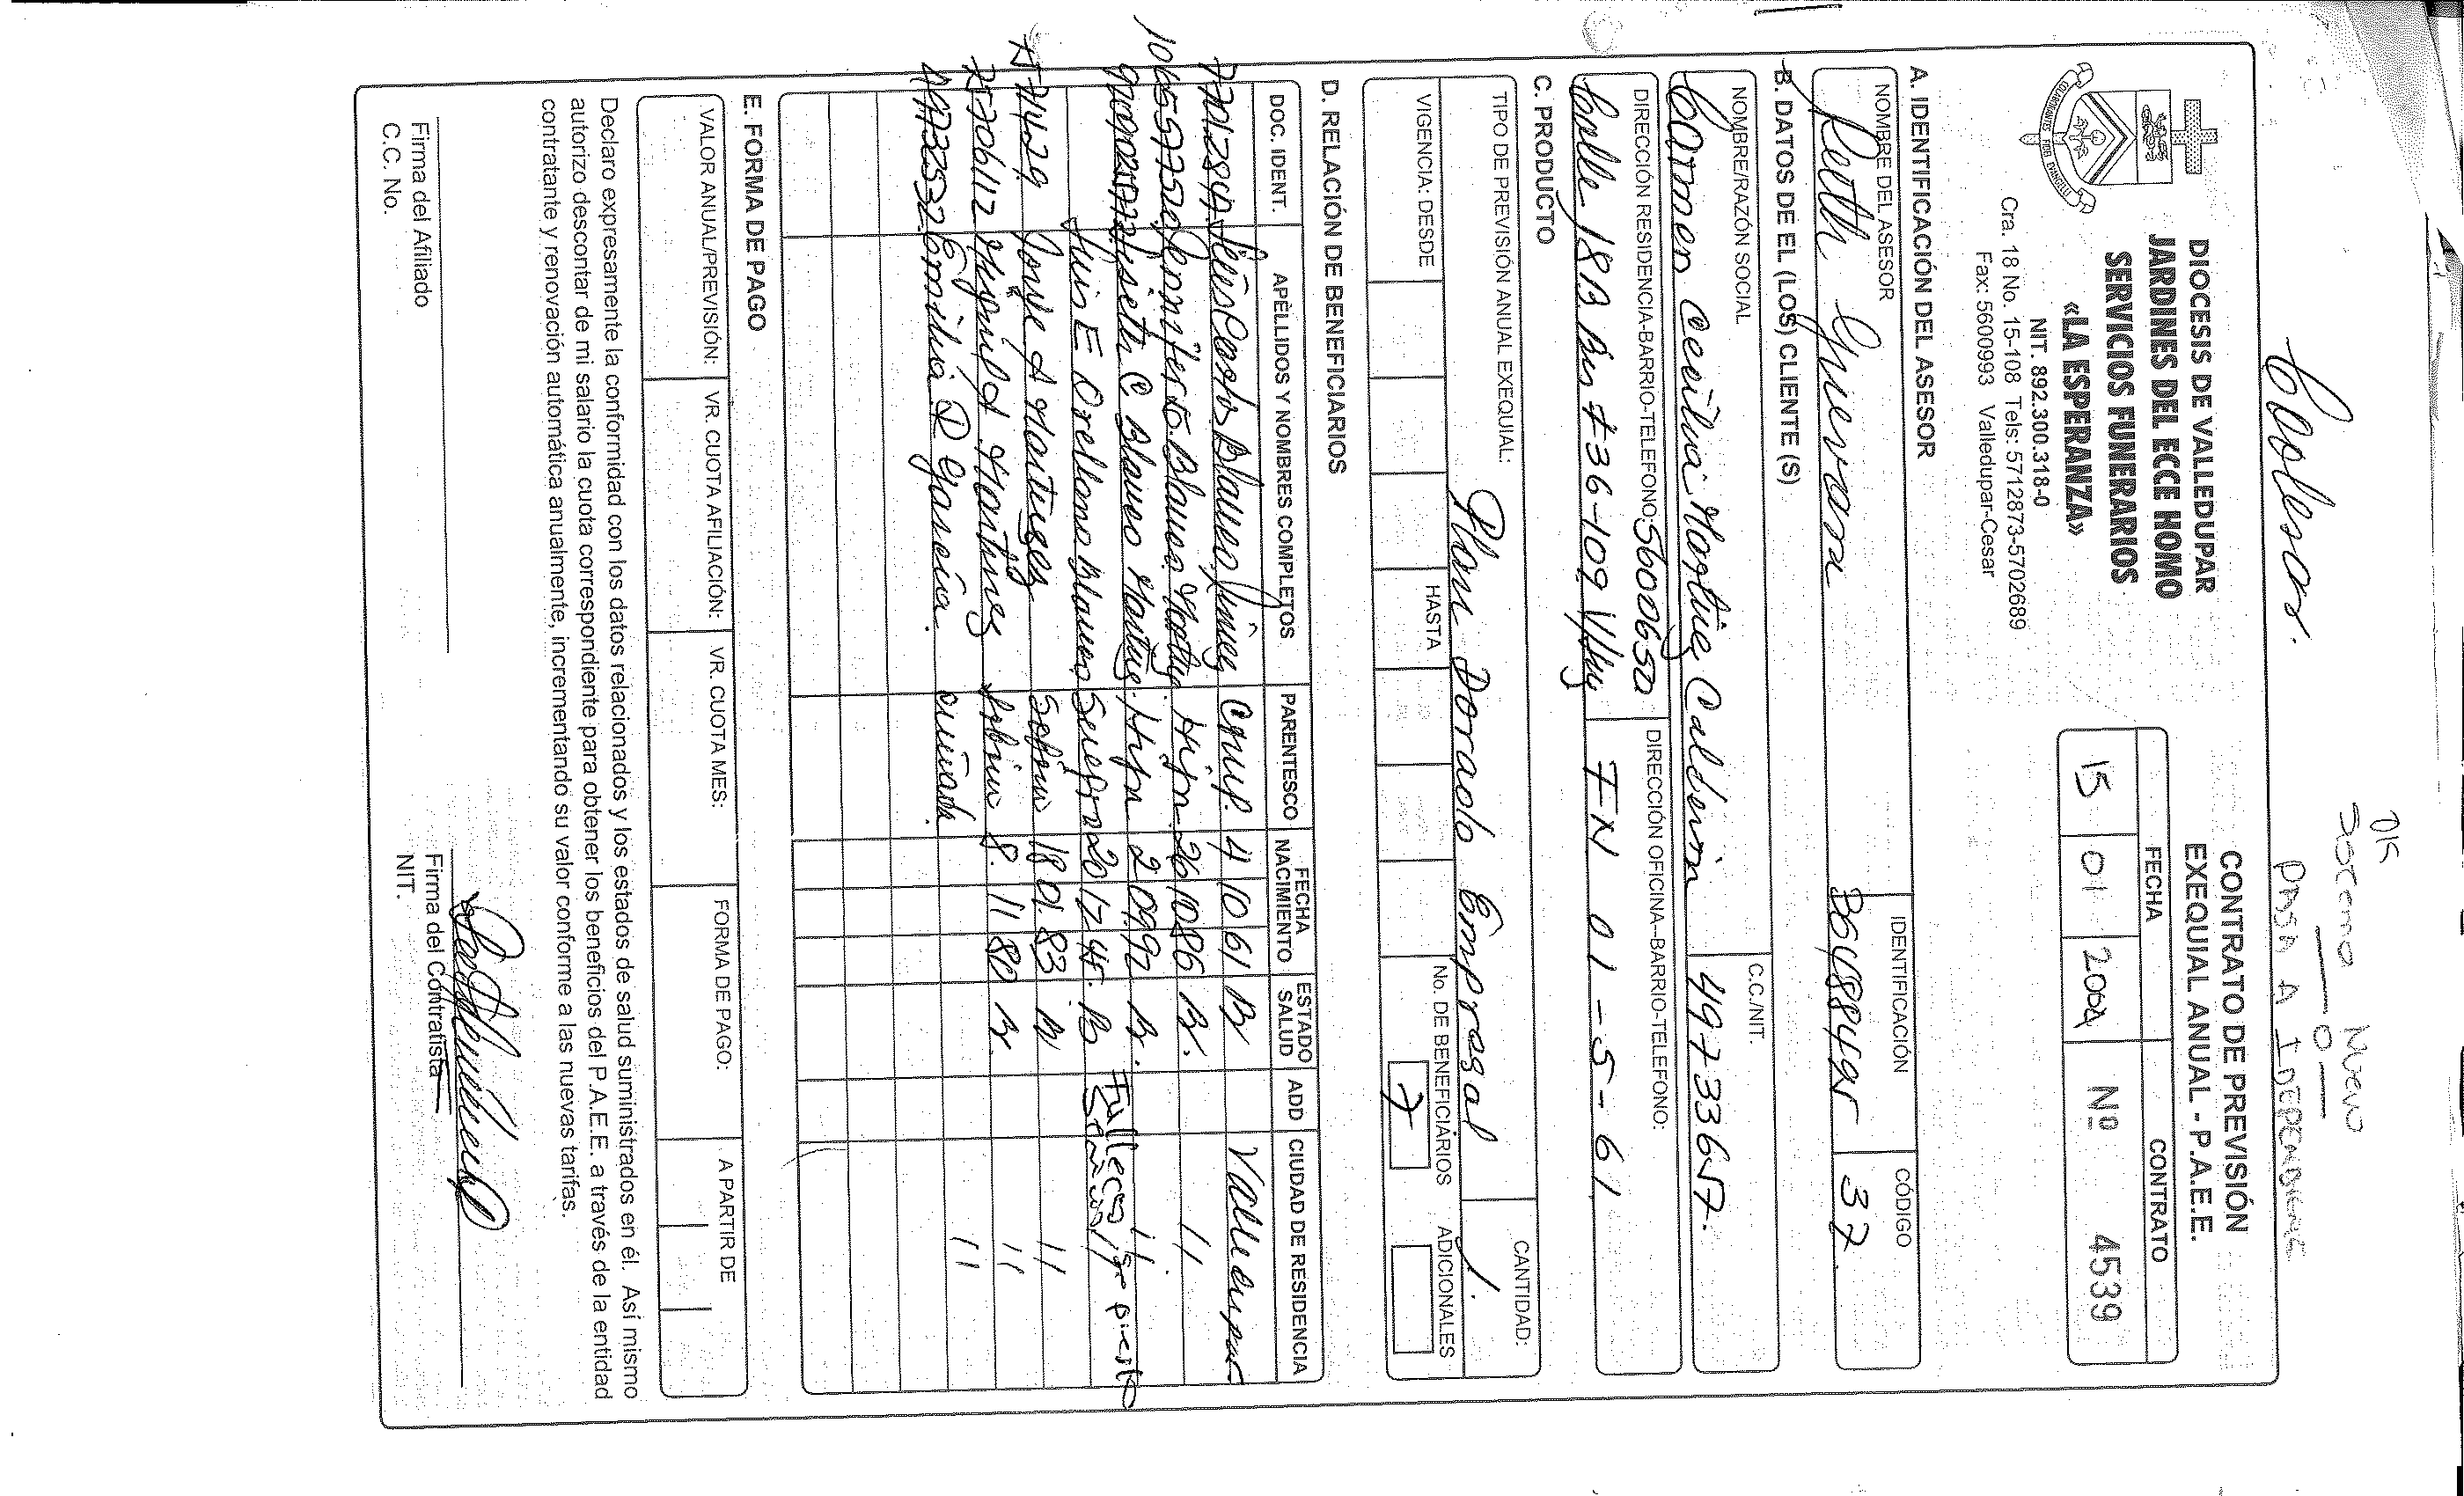 Coolesar.
OK
Sistema Nuevo
—O—
PASA A INDEPENDIENTE
DIOCESIS DE VALLEDUPAR
JARDINES DEL ECCE HOMO
SERVICIOS FUNERARIOS
«LA ESPERANZA»
NIT. 892.300.318-0
Cra. 18 No. 15-108 Tels: 5712873-5702689
Fax: 5600993 Valledupar-Cesar
CONTRATO DE PREVISIÓN
EXEQUIAL ANUAL - P.A.E.E.
FECHA CONTRATO
15 01 2004 Nº 4539
A. IDENTIFICACIÓN DEL ASESOR
NOMBRE DEL ASESOR IDENTIFICACIÓN CÓDIGO
Guevara 37
B. DATOS DE EL (LOS) CLIENTE (S)
NOMBRE/RAZÓN SOCIAL C.C./NIT.
Carmen Cecilia Martinez Calderon 49733657.
DIRECCIÓN RESIDENCIA-BARRIO-TELEFONO: 5600650 DIRECCIÓN OFICINA-BARRIO-TELEFONO:
Calle 18B Bis #36-109 FN 01-5-61
C. PRODUCTO
TIPO DE PREVISIÓN ANUAL EXEQUIAL: Plan Dorado Empresal CANTIDAD: 1.
VIGENCIA: DESDE HASTA No. DE BENEFICIARIOS 7 ADICIONALES
D. RELACIÓN DE BENEFICIARIOS
DOC. IDENT. APELLIDOS Y NOMBRES COMPLETOS PARENTESCO FECHA NACIMIENTO ESTADO SALUD ADD CIUDAD DE RESIDENCIA
Carlos Blanco Conup. 4 10 61 B Valledupar
Blanco Hija 26 10 86 B. 11
C Blanco Martinez. Hija 2 09 92 B. 11
Luis E Orellano Blanco Suegra 20 12 45. B Fallecio
77 Jorge A Martinez Sobrino 18 01. 83 B 11
Miguel A Martinez Sobrino 8. 11 80 B. 11
Emilia D Garcia. cuñada. 11
E. FORMA DE PAGO
VALOR ANUAL/PREVISIÓN: VR. CUOTA AFILIACIÓN: VR. CUOTA MES: FORMA DE PAGO: A PARTIR DE
Declaro expresamente la conformidad con los datos relacionados y los estados de salud suministrados en él. Así mismo
autorizo descontar de mi salario la cuota correspondiente para obtener los beneficios del P.A.E.E. a través de la entidad
contratante y renovación automática anualmente, incrementando su valor conforme a las nuevas tarifas.
Firma del Afiliado Firma del Contratista
C.C. No. NIT.